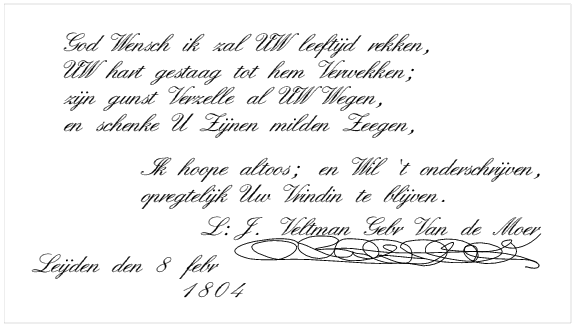 God Wensch ik zal UW leeftijd rekken,
UW hart gestaag tot hem Verwekken;
zijn gunst Verzelle al UW Wegen,
en schenke U Zijnen milden Zeegen,
Ik hoope altoos; en Wil 't onderschrijven,
opregtelijk Uw Vrindin te blijven.
L: J. Veltman Gebr Van de Moer
Leijden den 8 febr
1804